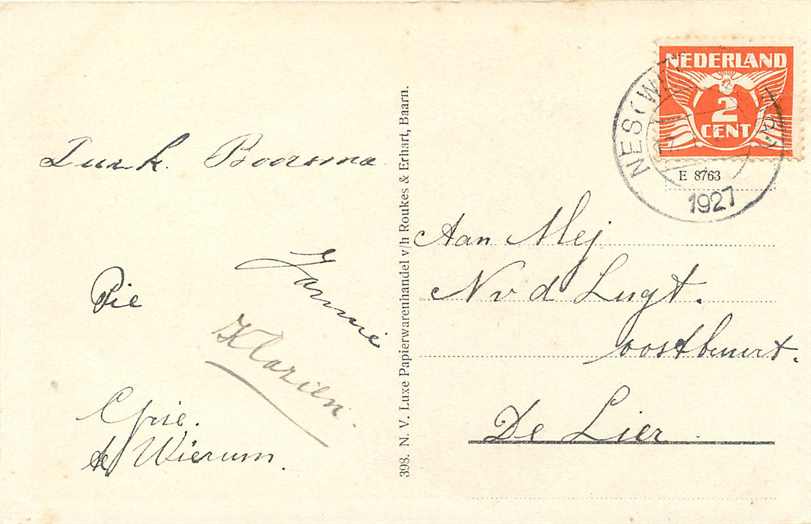 Boorsma
Jannie
Pie
Klazien.
Wierum.
398. N. V. Luxe Papierwarenhandel v/h Roukes & Erhart, Baarn.
NEDERLAND
2
CENT
NES (W
1927
E 8763
Aan Mej
N v d Lugt.
oostbuurt.
De Lier